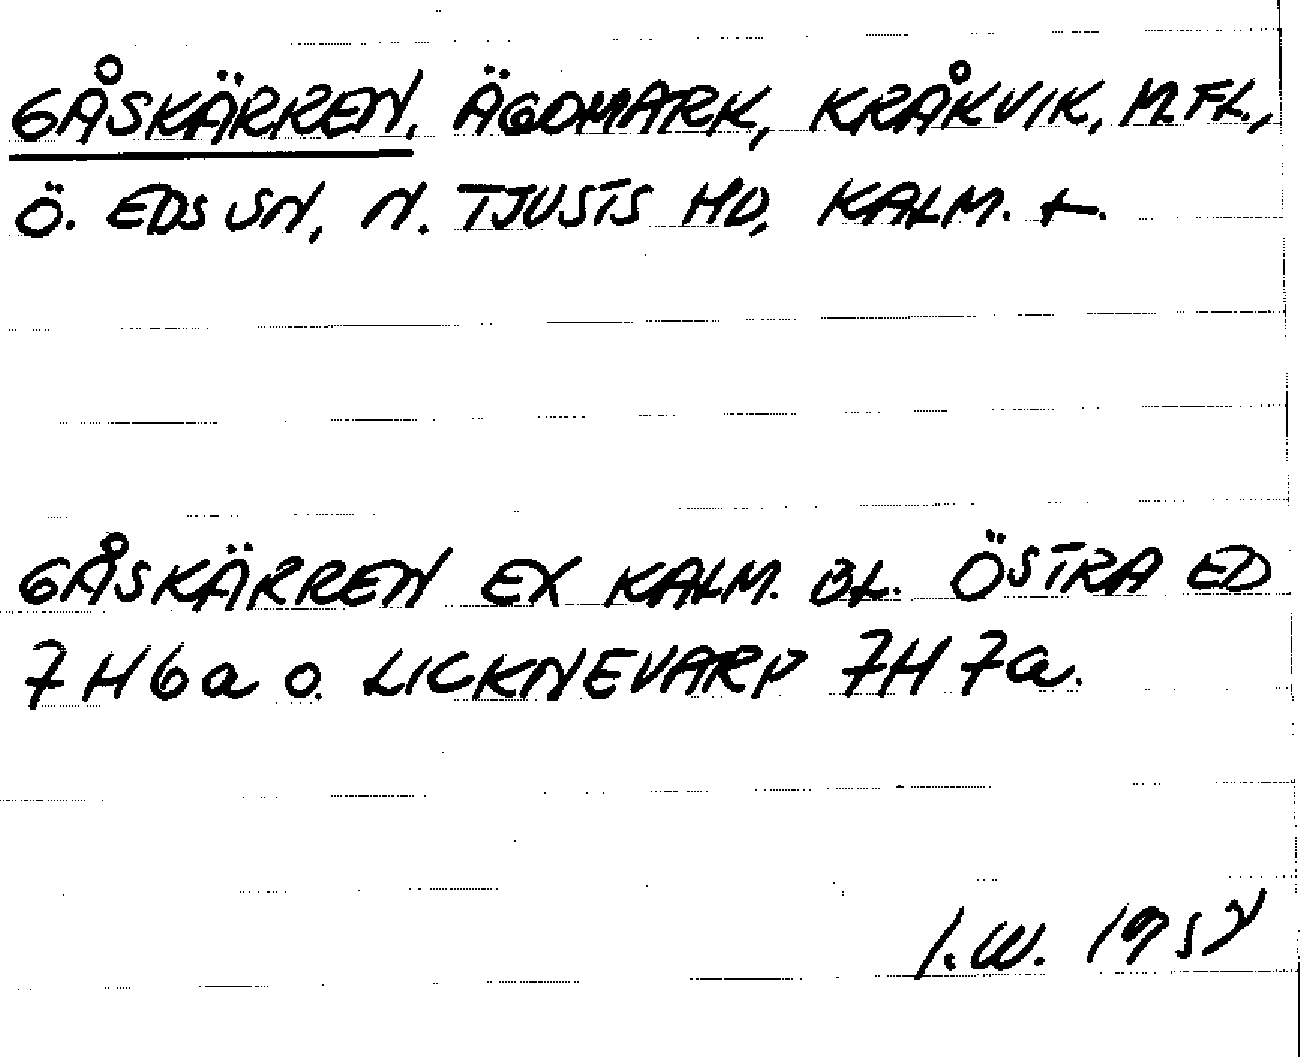 GÅSKÄRREN, ÄGOMARK, KRÅKVIK, M.FL.,
Ö. EDS SN, N. TJUSTS HD, KALM. L.
GÅSKÄRREN EX KALM. BL. ÖSTRA ED
7H6a o. LICKNEVARP 7H7a.
I.W. 195